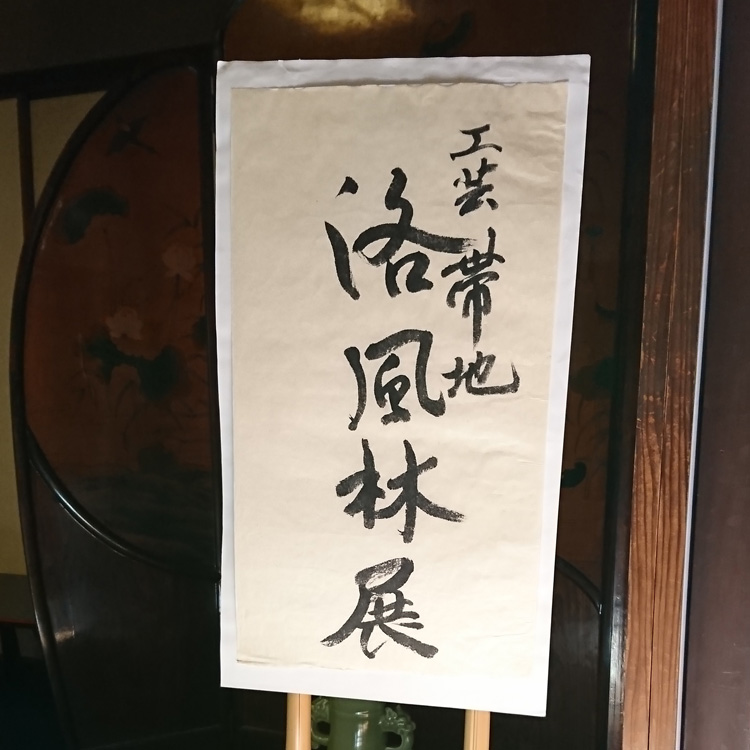 工芸帯地
洛風林展